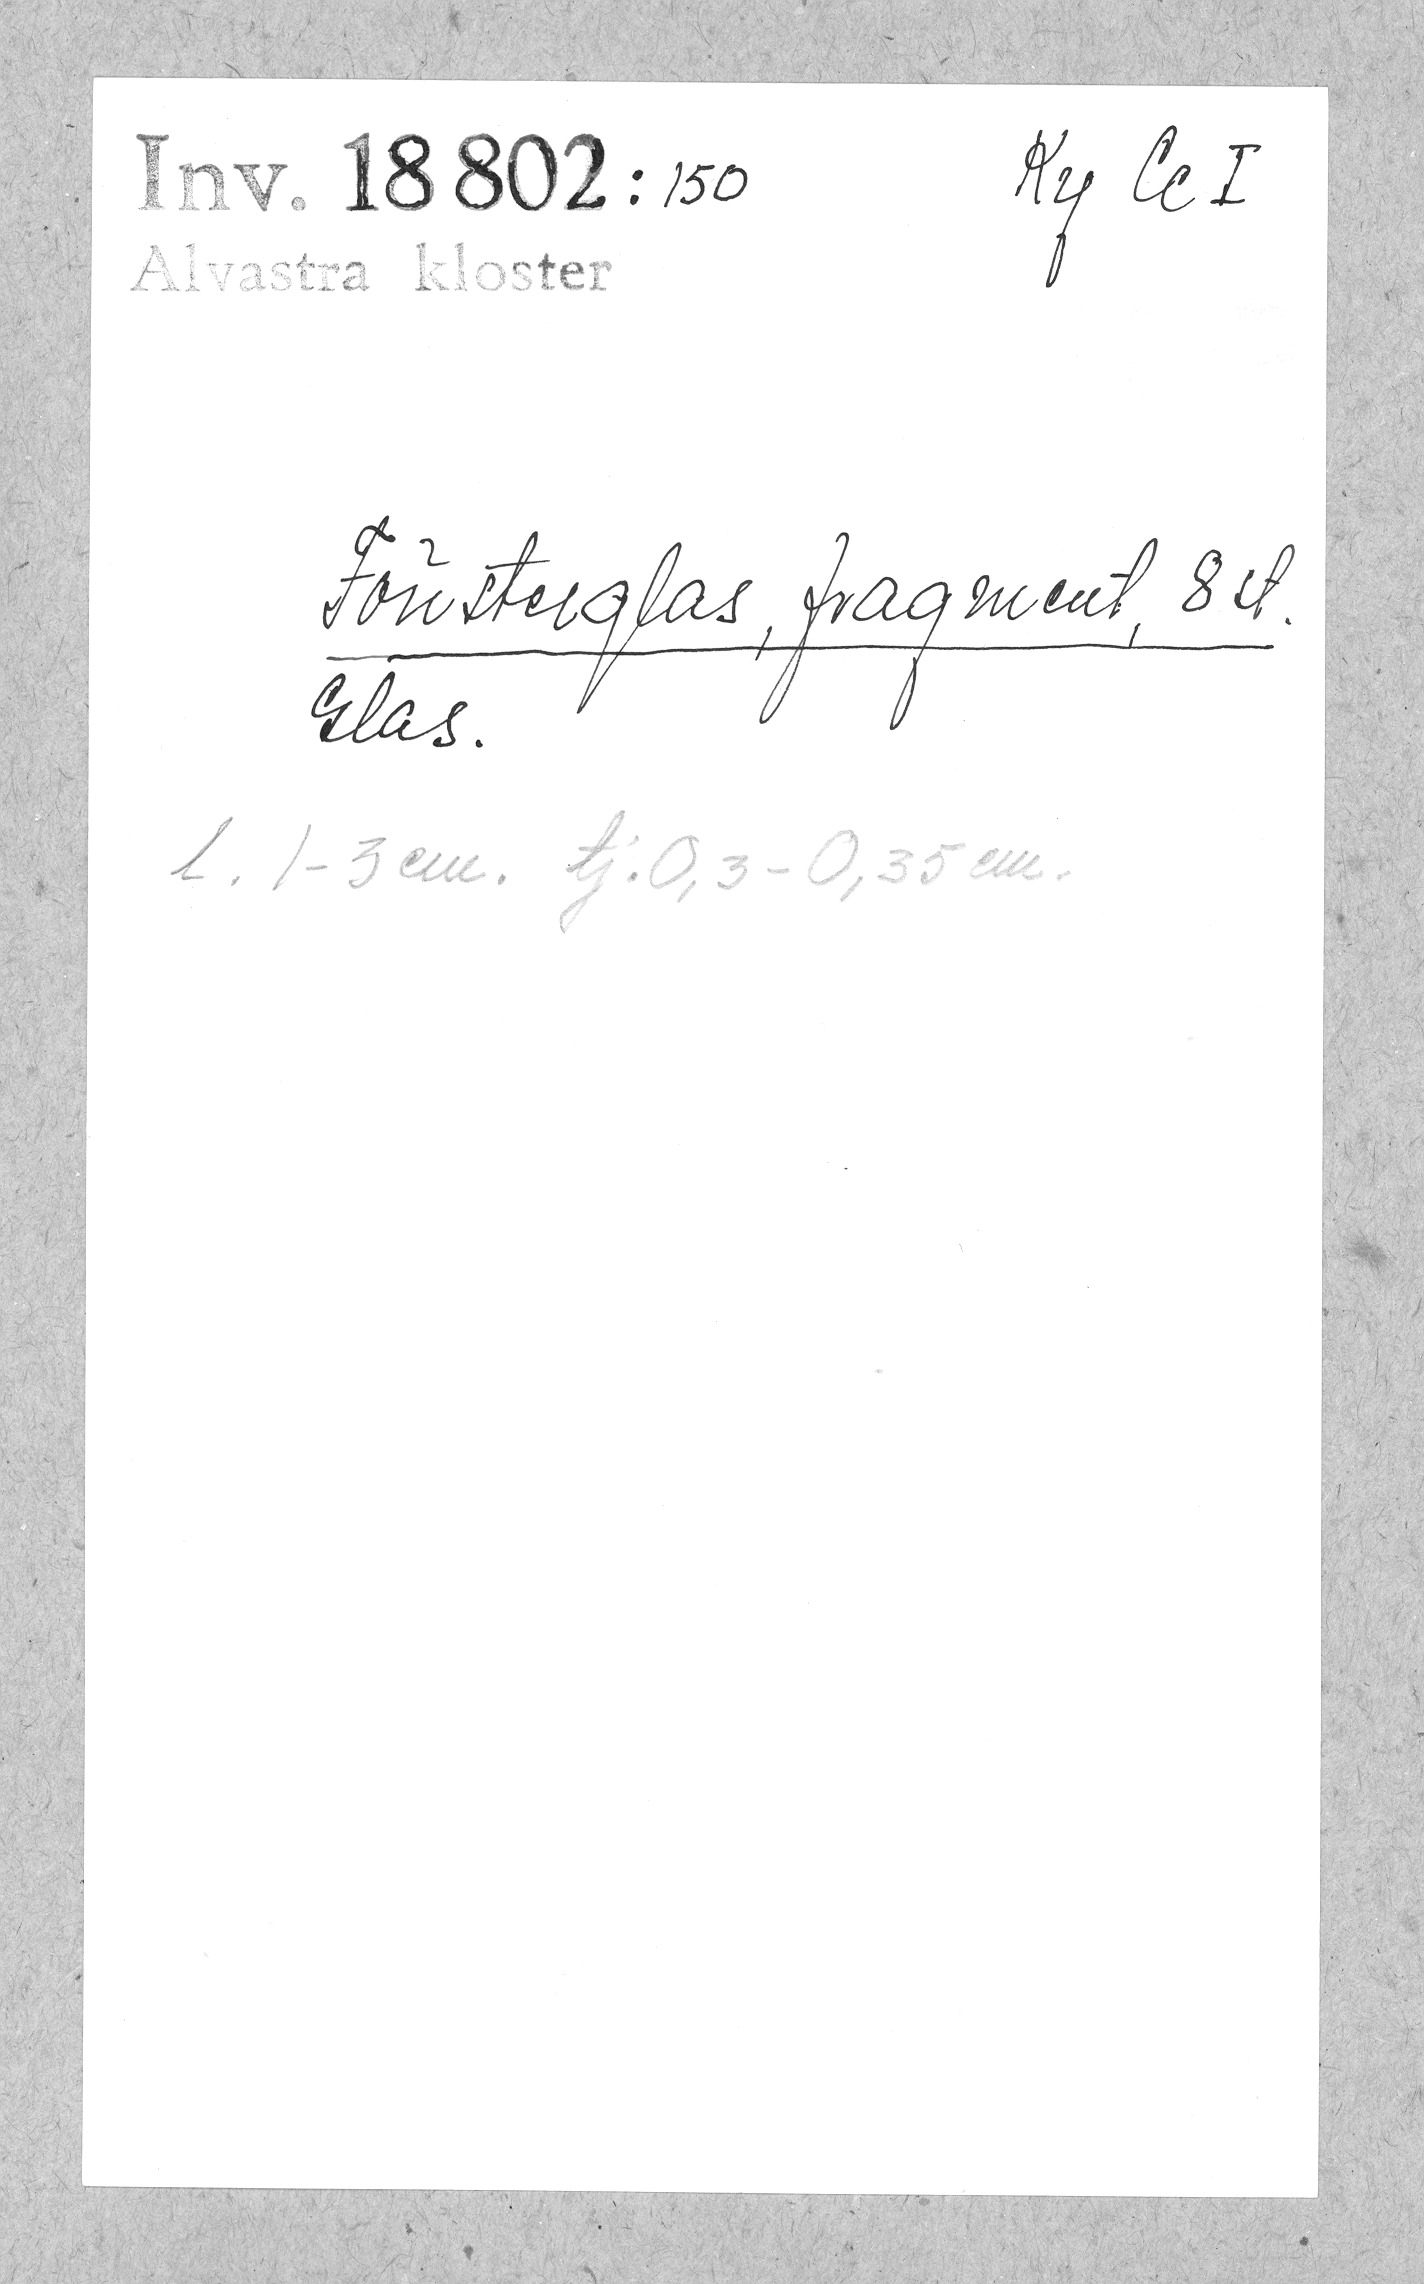 Inv. 18 802 : 150 Ky Cc I
Alvastra kloster
Fönsterglas, fragment, 8 st.
Glas.
L. 1-3 cm. tj. 0,3-0,35 cm.